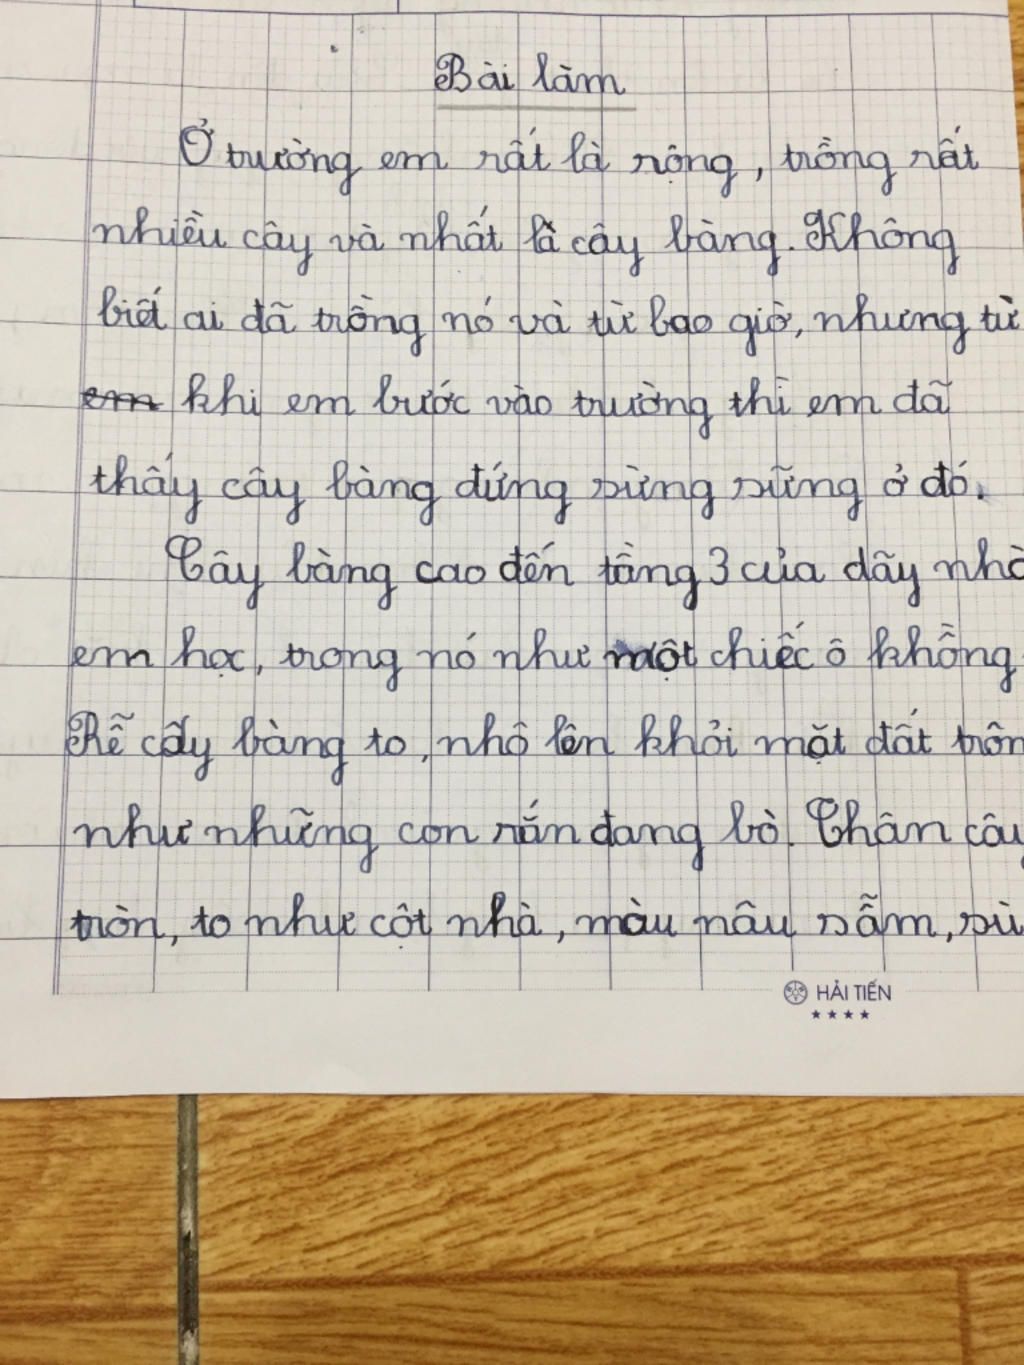 Bài làm
Ở trường em rất là rộng, trồng rất
nhiều cây và nhất là cây bàng. Không
biết ai đã trồng nó và từ bao giờ, nhưng từ
em khi em bước vào trường thì em đã
thấy cây bàng đứng sừng sững ở đó.
Cây bàng cao đến tầng 3 của dãy nhà
em học, trong nó như một chiếc ô khổng
Rễ cây bàng to, nhô lên khỏi mặt đất trôn
như những con rắn đang bò. Thân cây
tròn, to như cột nhà, màu nâu sẫm, sù
HẢI TIẾN